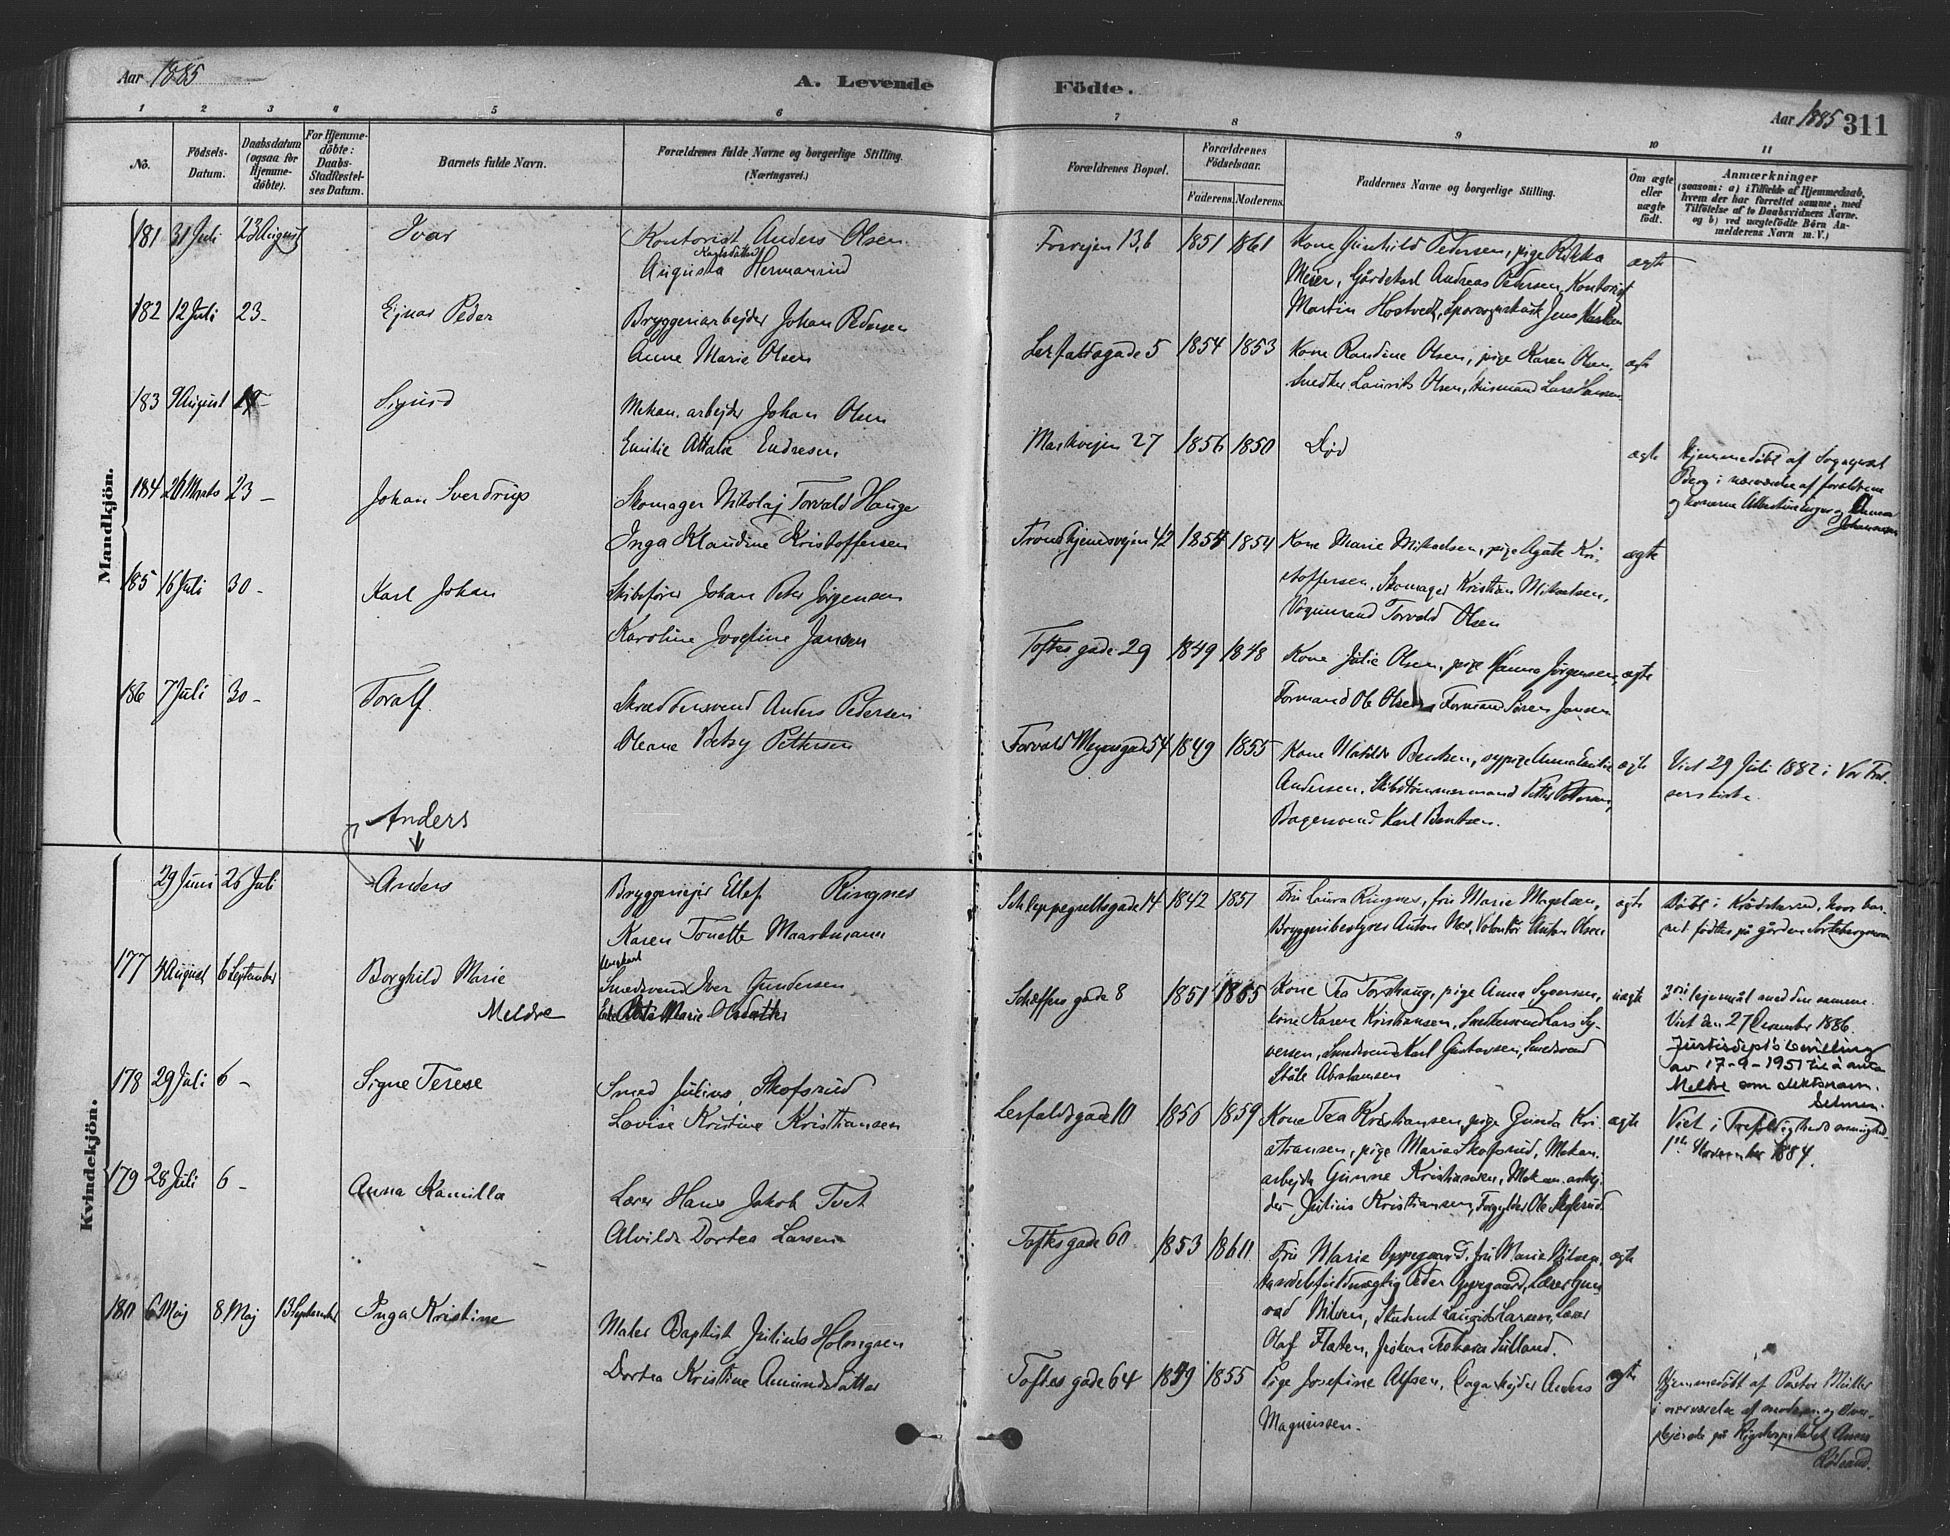 Aar 1885
A. Levende Födte.
Aar 1885 311
1 2 3 4 5 6 7 8 9 10 11
No.
Födsels-
Datum.
Daabsdatum
(ogsaa for
Hjemme-
döbte).
For Hjemme-
döbte:
Daabs-
Stadfæstel-
ses Datum.
Barnets fulde Navn.
Forældrenes fulde Navne og borgerlige Stilling.
(Næringsvei.)
Forældrenes Bopæl.
Forældrenes
Födselsaar.
Faderens. Moderens.
Faddernes Navne og borgerlige Stilling.
Om ægte
eller
uægte
født.
Anmærkninger
(saasom: a) i Tilfælde af Hjemmedaab,
hvem der har forrettet samme, med
Tilföielse af to Daabsvidners Navne.
og b) ved uægtefödte Börn An-
melderens Navn m. V.)
Mandkjön.
181 31 Juli 23 August Ivar
Kontorist Anders Olsen
Augusta Karlsdatter Hermansrud
Forvejen 13.b 1851 1861
Kone Gunhild Pedersen, pige Rikka
Meier, Gårdskarl Andreas Petersen, Kontorist
Martin Hostvedt, Sporvognskusk Jens
ægte
182 12 Juli 23 - Ejnar Peder
Bryggeriarbejder Johan Pedersen
Anne Marie Olsen
Lerfaldsgade 5 1854 1853
Kone Randine Olsen, pige Karen Olsen,
Snedker Laurits Olsen, Husmand Lars Larsen
ægte
183 9 August 19 - Sigurd
Mekan. arbejder Johan Olsen
Emilie Attalie Endresen
Markvejen 27 1856 1850
Død
ægte
Hjemmedøbt af Sogneprest
Berg i nærværelse af forældrene
og konerne Albertine og
Johannesen
184 26 Marts 23 - Johan Sverdrup
Skomager Nikolaj Torvald Hauge
Inga Klaudine Kristoffersen
Trondhjemsvejen 42 1854 1854
Kone Marie Mikaelsen, pige Agate Kri-
stoffersen, Skomager Kristian Mikaelsen,
Vognmand Torvald Olsen
ægte
185 16 Juli 30 - Karl Johan
Skibsfører Johan Peter Jørgensen
Karoline Josefine Jansen
Toftes gade 29 1849 1848
Kone Julie Olsen, pige Hanna Jørgensen,
Formand Ole Olsen, Formand Søren Jansen
ægte
186 7 Juli 30 - Toralf
Skræddersvend Anders Pedersen
Oleane Betsy Pettersen
Torvald Meyersgade 54 1849 1855
Kone Matilde Bentsen, sypige Anna Emilie
Andersen, Skibstømmermand Petter Pettersen,
Bagersvend Karl Bentsen.
ægte
Viet 29 Juli 1882 i Vor Frel-
sers kirke.
Anders
Kvindekjön.
29 Juni 26 Juli Anders
Bryggeriejer Ellef Ringnes
Karen Tonette Maartmann
Schleppegrellsgade 14 1842 1851
Fru Laura Ringnes, fru Marie Magelsen,
Bryggeribestyrer Anton Næs, Volontør Anton Olsen
ægte
Døbt i Krødsherred, hvor bar-
net fødtes på gården
177 4 August 6 September Borghild Marie
Meldre
Ungkarl
Smedsvend Iver Gundersen
Marie Olsdatter
Schæffers gade 8 1851 1855
Kone Tea Torshaug, pige Anna Syversen,
kone Karen Kristiansen, Snedkersvend Lars Sy-
versen, Smedsvend Karl Gustavsen, Smedsvend
Ståle Abrahamsen
uægte
3die lejermål med den samme.
Viet den 27 December 1886.
Justisdep's bevilling
av 17-9-1951 til å anta
Meldre som slektsnavn.
178 29 Juli 6 - Signe Terese
Smed Julius Skofsrud
Lovise Kristine Kristiansen
Lerfaldsgade 10 1856 1859
Kone Tea Kristiansen, pige Gunda Kri-
stiansen, pige Maria Skofsrud, Mekan.
arbejder Gunne Kristiansen, Mekan. arbej-
der Julius Kristiansen, Forgylder Ole Skofsrud.
ægte
Viet i Trefoldigheds menighed
1ste November 1884.
179 28 Juli 6 - Anna Kamilla
Lærer Hans Jakob Tvet
Alvilde Dortea Larsen
Toftes gade 60 1853 1860
Fru Marie Oppegaard, fru Marie Nilsen,
Handelsfuldmægtig Peder Oppegaard, Lærer Gun-
vad Nilsen, Student Laurits Larsen, Lærer
Olaf Flaten, frøken Tekara Sulland.
ægte
180 6 Maj 8 Maj 13 September Inga Kristine
Maler Baptist Julius Holmgren
Dortea Kristine Amundsdatter
Toftes gade 64 1859 1855
Pige Josefine Alfsen, Dagarbejder Anders
Magnussen.
ægte
Hjemmedøbt af Pastor Müller
i nærværelse af moderen og over-
plejerske på Rigshospitalet Anna